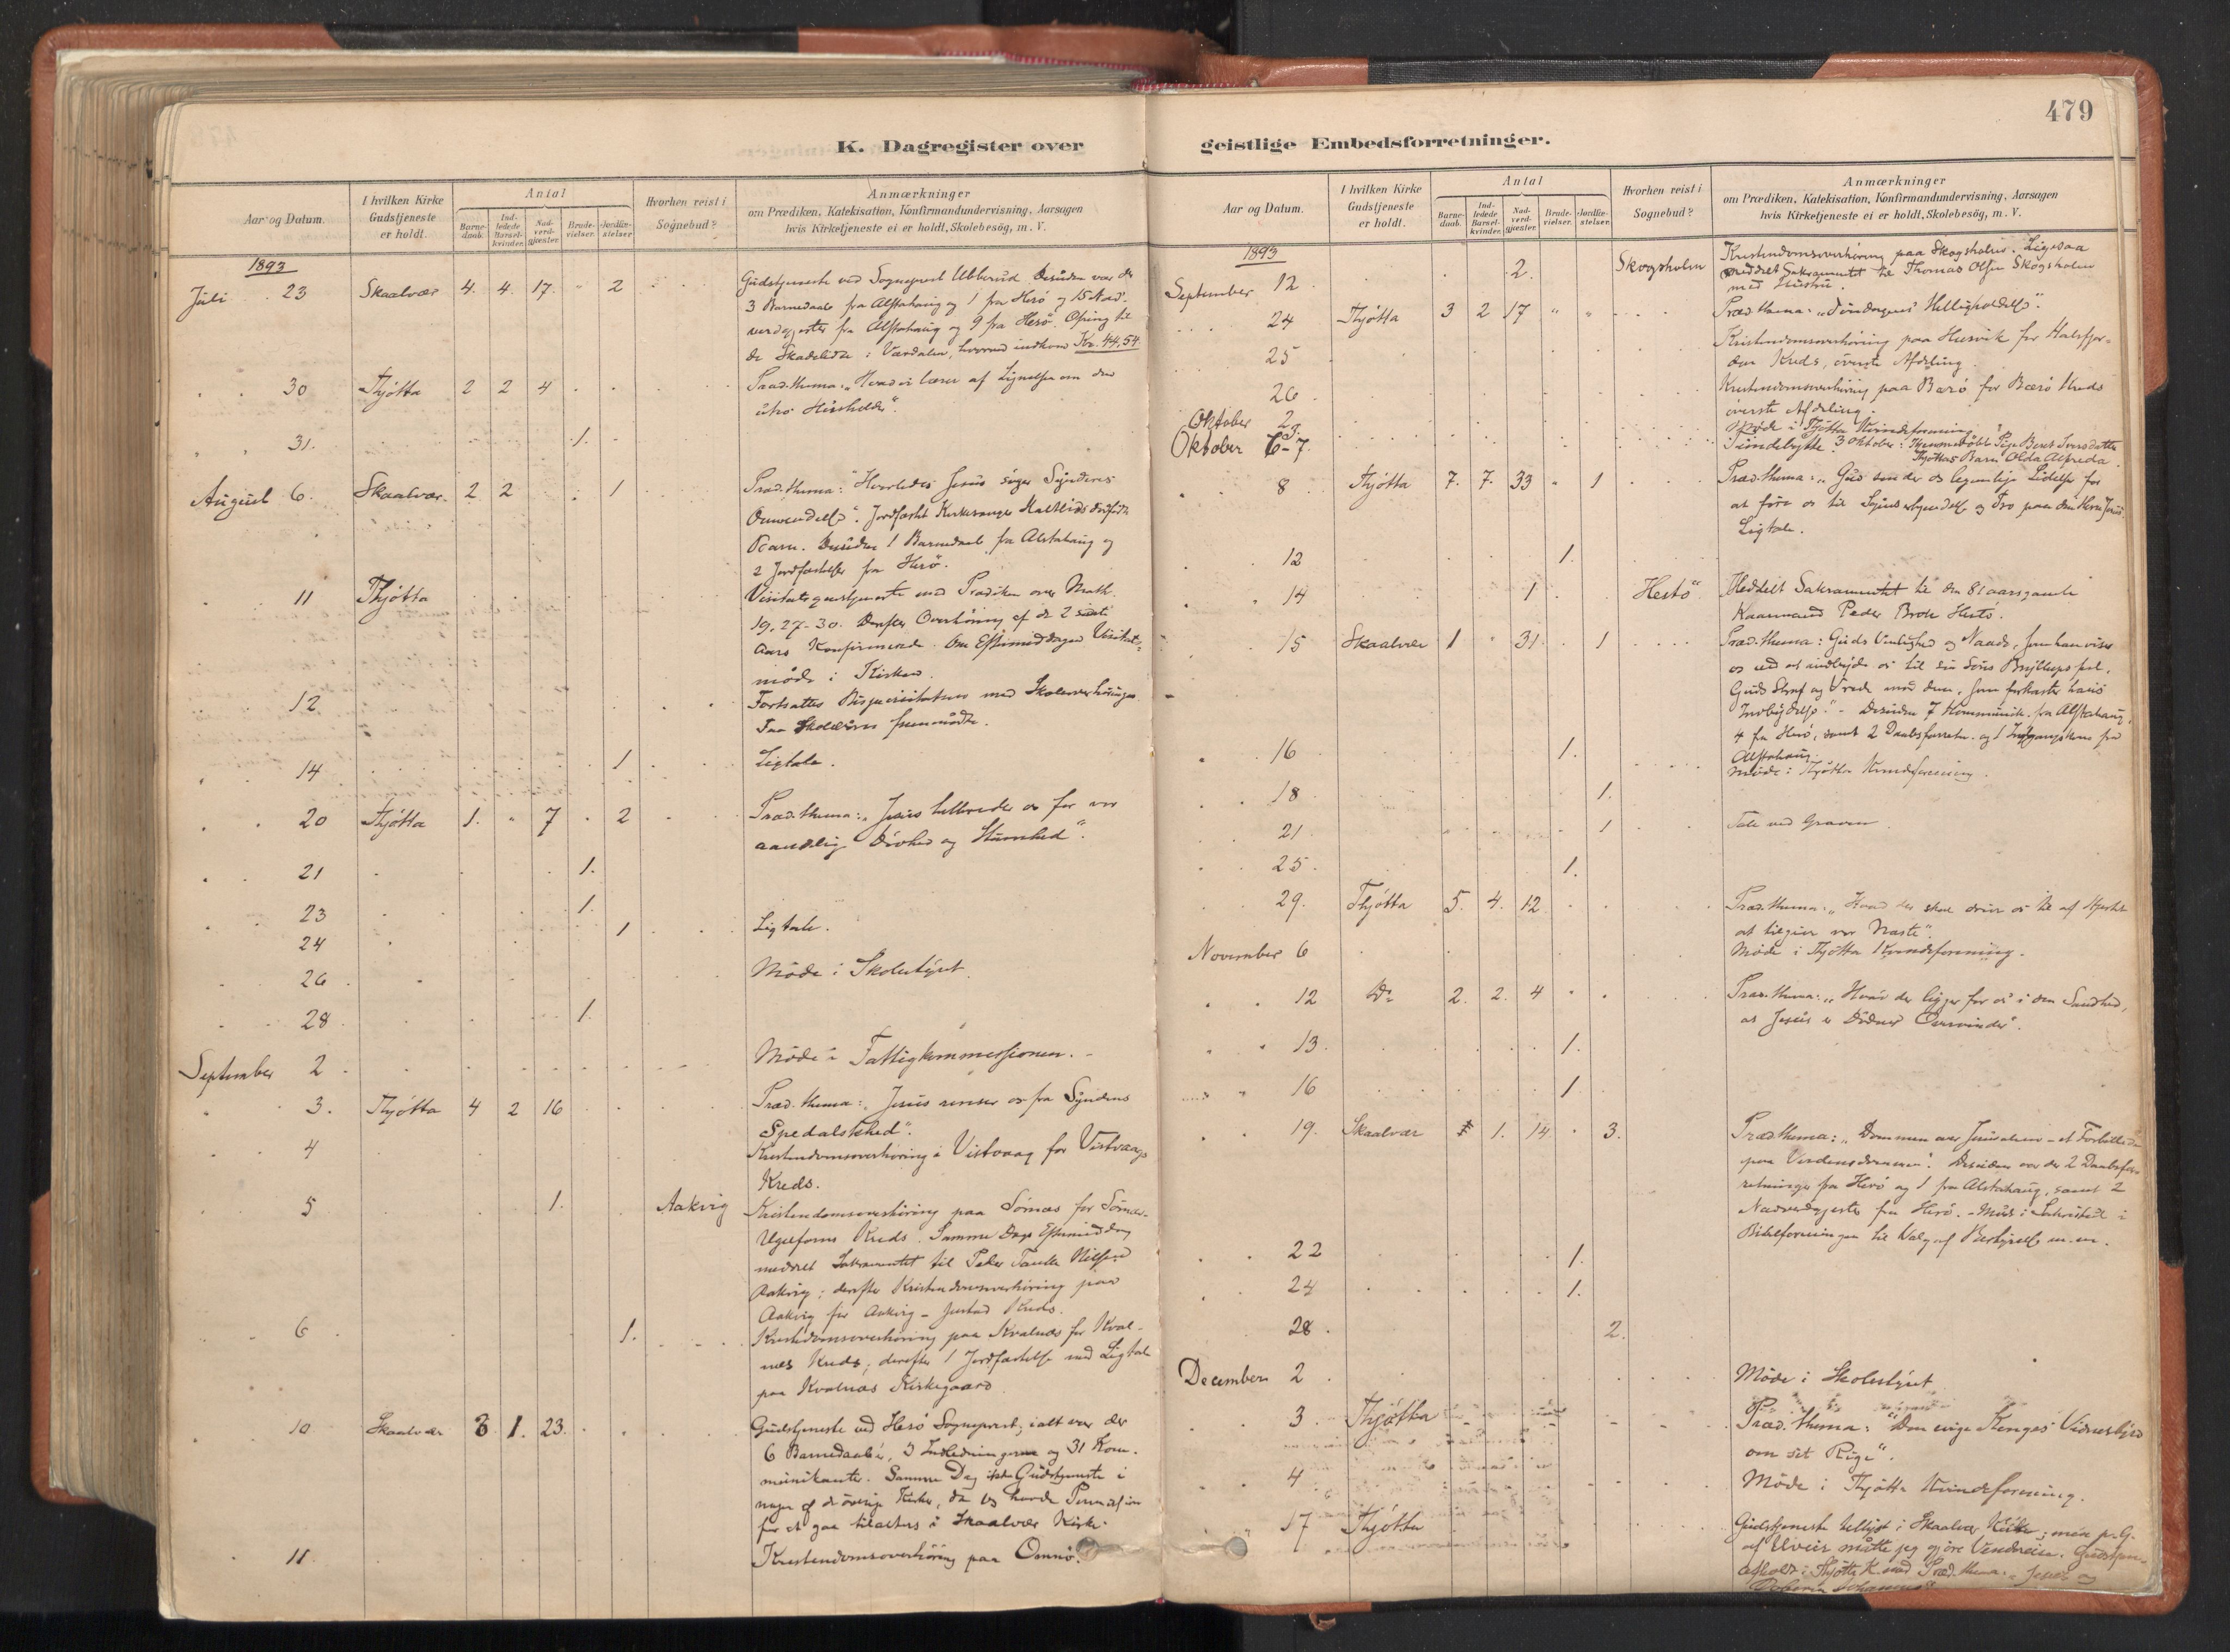 479
K. Dagregister over geistlige Embedsforretninger.
Aar og Datum.
I hvilken Kirke Gudstjeneste er holdt.
Antal
Barne-daab.
Ind-ledede Barsel-kvinder.
Nad-verd-gjæster
Brude-vielser.
Jordfæ-stelser
Hvorhen reist i Sognebud?
Anmærkninger
om Prædiken, Katekisation, Konfirmandundervisning, Aarsagen
hvis Kirketjeneste ei er holdt, Skolebesög, m. V.
1893
Juli 23 Skaalvær 4. 4. 17. " 2 Gudstjeneste ved Sogneprest Ubberud desuden var der
3 Barnedaab fra Alstahaug og 1 fra Herö og 15 Nad-
verdgjester fra Alstahaug og 9 fra Herö. Ofring til
de Skadelidte i Værdalen, hvorved indkom Kr. 44,54
30 Thjötta 2 2 4 Præd.thema: "Hvad vi lærer af Lignelsen om den
utro Husholder".
31. 1.
August 6. Skaalvær. 2 2 1 Præd.thema: "Hvorledes Jesus söger Synderes
Omvendelse". Jordfæstet Kirkesanger
Barn. Desuden 1 Barnedaab fra Alstahaug og
2 Jordfæstelser fra Herö.
11 Thjötta Visitatsgudstjeneste med Prædiken over Math.
19, 27-30. Derefter Overhöring af de 2 sidste
Aars Konfirmerede. Om Eftermiddagen Visitats-
möde i Kirken.
12 Fortsattes Bispevisitatsen med Skoleoverhöringer
Skolekredse fremmödte.
14 1 Ligtale.
20 Thjötta 1. " 7 2 Præd.thema: "Jesus helbreder os for vor
aandelig Dövhed og Stumhed".
21 1.
23 1.
24 1 Ligtale.
26 Möde i Skolestyret.
28 1.
September 2 Möde i Fattigkommissionen.
3. Thjötta 4 2 16 Præd.thema: "Jesus renser os fra Syndens
Spedalskhed".
4 Kristendomsoverhöring i Vistvaag for Vistvaag
Kreds.
5 1. Aakvig Kristendomsoverhöring paa Sörnæs for Sörnæs-
Kreds. Samme Dags Eftermiddag
meddelt Sakramentet til Peder Nilsen
Aakvig; derefter Kristendomsoverhöring paa
Aakvig for Aakvig - Kreds.
6 1. Kristendomsoverhöring paa Kvalnæs for Kval-
næs Kreds; derefter 1 Jordfæstelse med Ligtale
paa Kvalnæs Kirkegaard.
10 Skaalvær 3 1. 23. Gudstjeneste ved Herö Sogneprest; ialt var der
6 Barnedaab, 3 Indledninger og 31 Kom-
munikanter. Samme Dag ikke Gudstjeneste i
nogen af de övrige Kirker, da jeg havde Permission
for at gaa tilalters i Skaalvær Kirke.
11 Kristendomsoverhöring paa Omnö.
Aar og Datum.
I hvilken Kirke Gudstjeneste er holdt.
Antal
Barne-daab.
Ind-ledede Barsel-kvinder.
Nad-verd-gjæster
Brude-vielser.
Jordfæ-stelser.
Hvorhen reist i Sognebud?
Anmærkninger
om Prædiken, Katekisation, Konfirmandundervisning, Aarsagen
hvis Kirketjeneste ei er holdt, Skolebesög, m. V.
1893
September 12 2. Skogsholm Kristendomsoverhöring paa Skogsholm. Ligesaa
meddelt Sakramentet til Thomas Olsen Skogsholm
med Hustru.
24 Thjötta 3 2 17 " " Præd.thema: "Söndagens Helligholdelse".
25 Kristendomsoverhöring paa Husvik for Halsfjor-
den Kreds, överste Afdeling.
26 Kristendomsoverhöring paa Bærö for Bærö Kreds
överste Afdeling.
Oktober 2 Möde i Thjötta Kvindeforening
Oktober 6-7. 3 Oktober: Hjemmedöbt Pige Beret Iversdatter
Thjöttas Barn Olda Alfreda.
8 Thjötta 7. 7. 33 " 1 Præd.thema: "Gud sender os legemlige Lidelser for
at före os til Synderkjendelse og Tro paa den Herre Jesus.
Ligtale.
12 1.
14 1 Hestö Meddelt Sakramentet til den 81 aarsgamle
Kaarmand Peder Hestö.
15 Skaalvær 1 " 31. 1 Præd.thema: Guds Venlighed og Naade, som han viser
os ved at indbyde os til sin Söns Bryllupsfest,
Guds Straf og Vrede mod dem, som forkaster hans
Indbydelse." - Desuden 7 Kommunik. fra Alstahaug,
4 fra Herö, samt 2 Daabsforretn. og 1 fra
Alstahaug
16 1. Möde i Thjötta Kvindeforening.
18 1.
21 1 Tale ved Graven
25. 1.
29. Thjötta 5. 4. 12. Præd.thema: "Hvad der skal drive os til af Hjertet
at tilgive vor Næste".
November 6 Möde i Thjötta Kvindeforening.
12 Do 2. 2. 4 Præd.thema: "Hvad der ligger for os i den Sandhed,
at Jesus er Dödens Overvinder".
13. 1.
16 1
19. Skaalvær 1. 14. 3. Præd.thema: "Dommen over Jerusalem - et Forbillede
paa Verdensdommen". Desuden var der 2 Daabsfor-
retninger fra Herö og 1 fra Alstahaug, samt 2
Nadverdgjester fra Herö. - Möde i Sakristiet i
Bibelforeningen til Valg af Bestyrelse m.m.
22 1.
24 1.
28. 2.
December 2 Möde i Skolestyret
3. Thjötta Præd.thema: "Den evige Konges Vidnesbyrd
om sit Rige".
4 Möde i Thjötta Kvindeforening.
17 Thjötta Gudstjeneste tillyst i Skaalvær Kirke; men p. G.
af Uveir måtte jeg gjöre Vendreise. Gudstjen.
afholdt i Thjötta K. med Præd.thema: "Jesus og
Johannes"